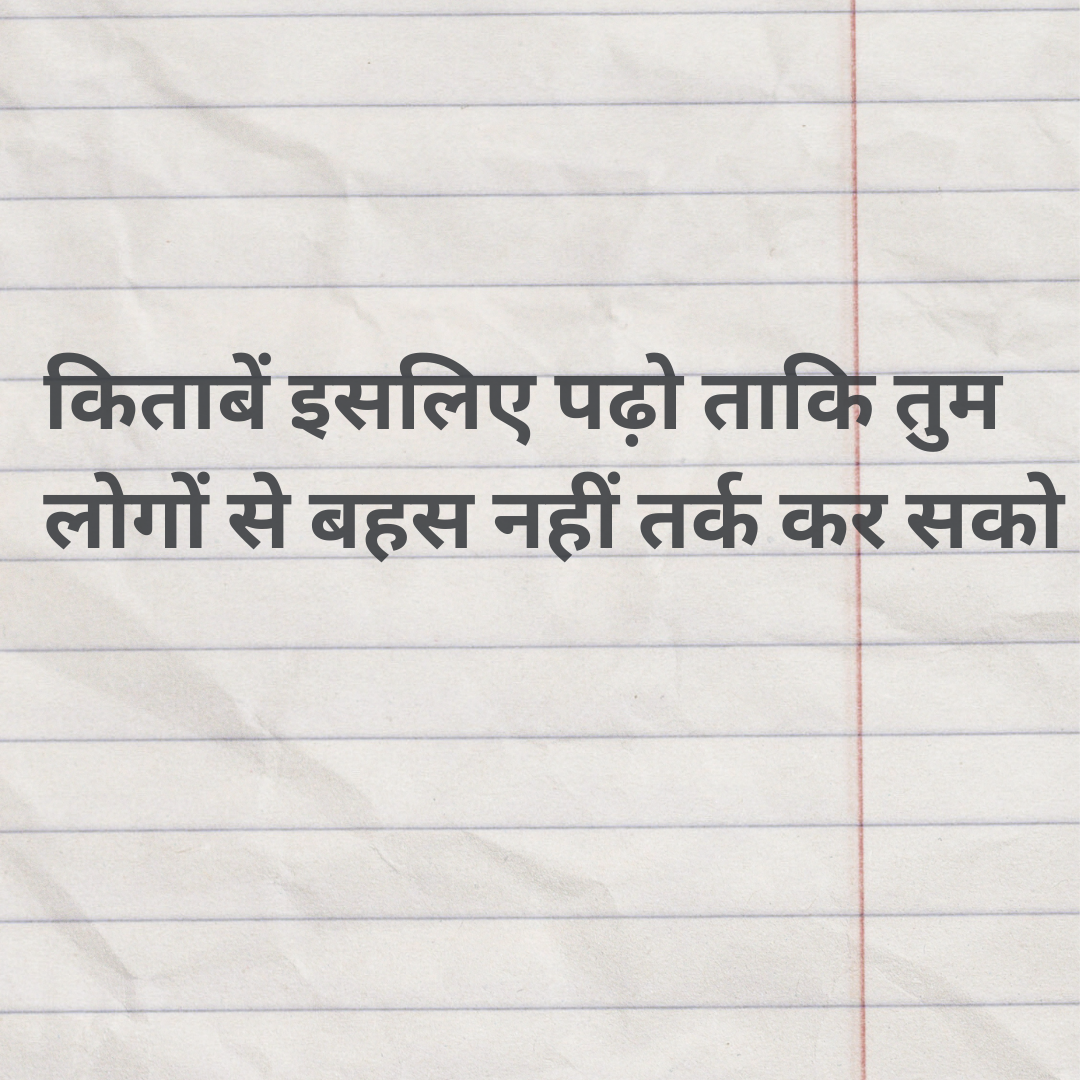 किताबें इसलिए पढ़ो ताकि तुम
लोगों से बहस नहीं तर्क कर सको